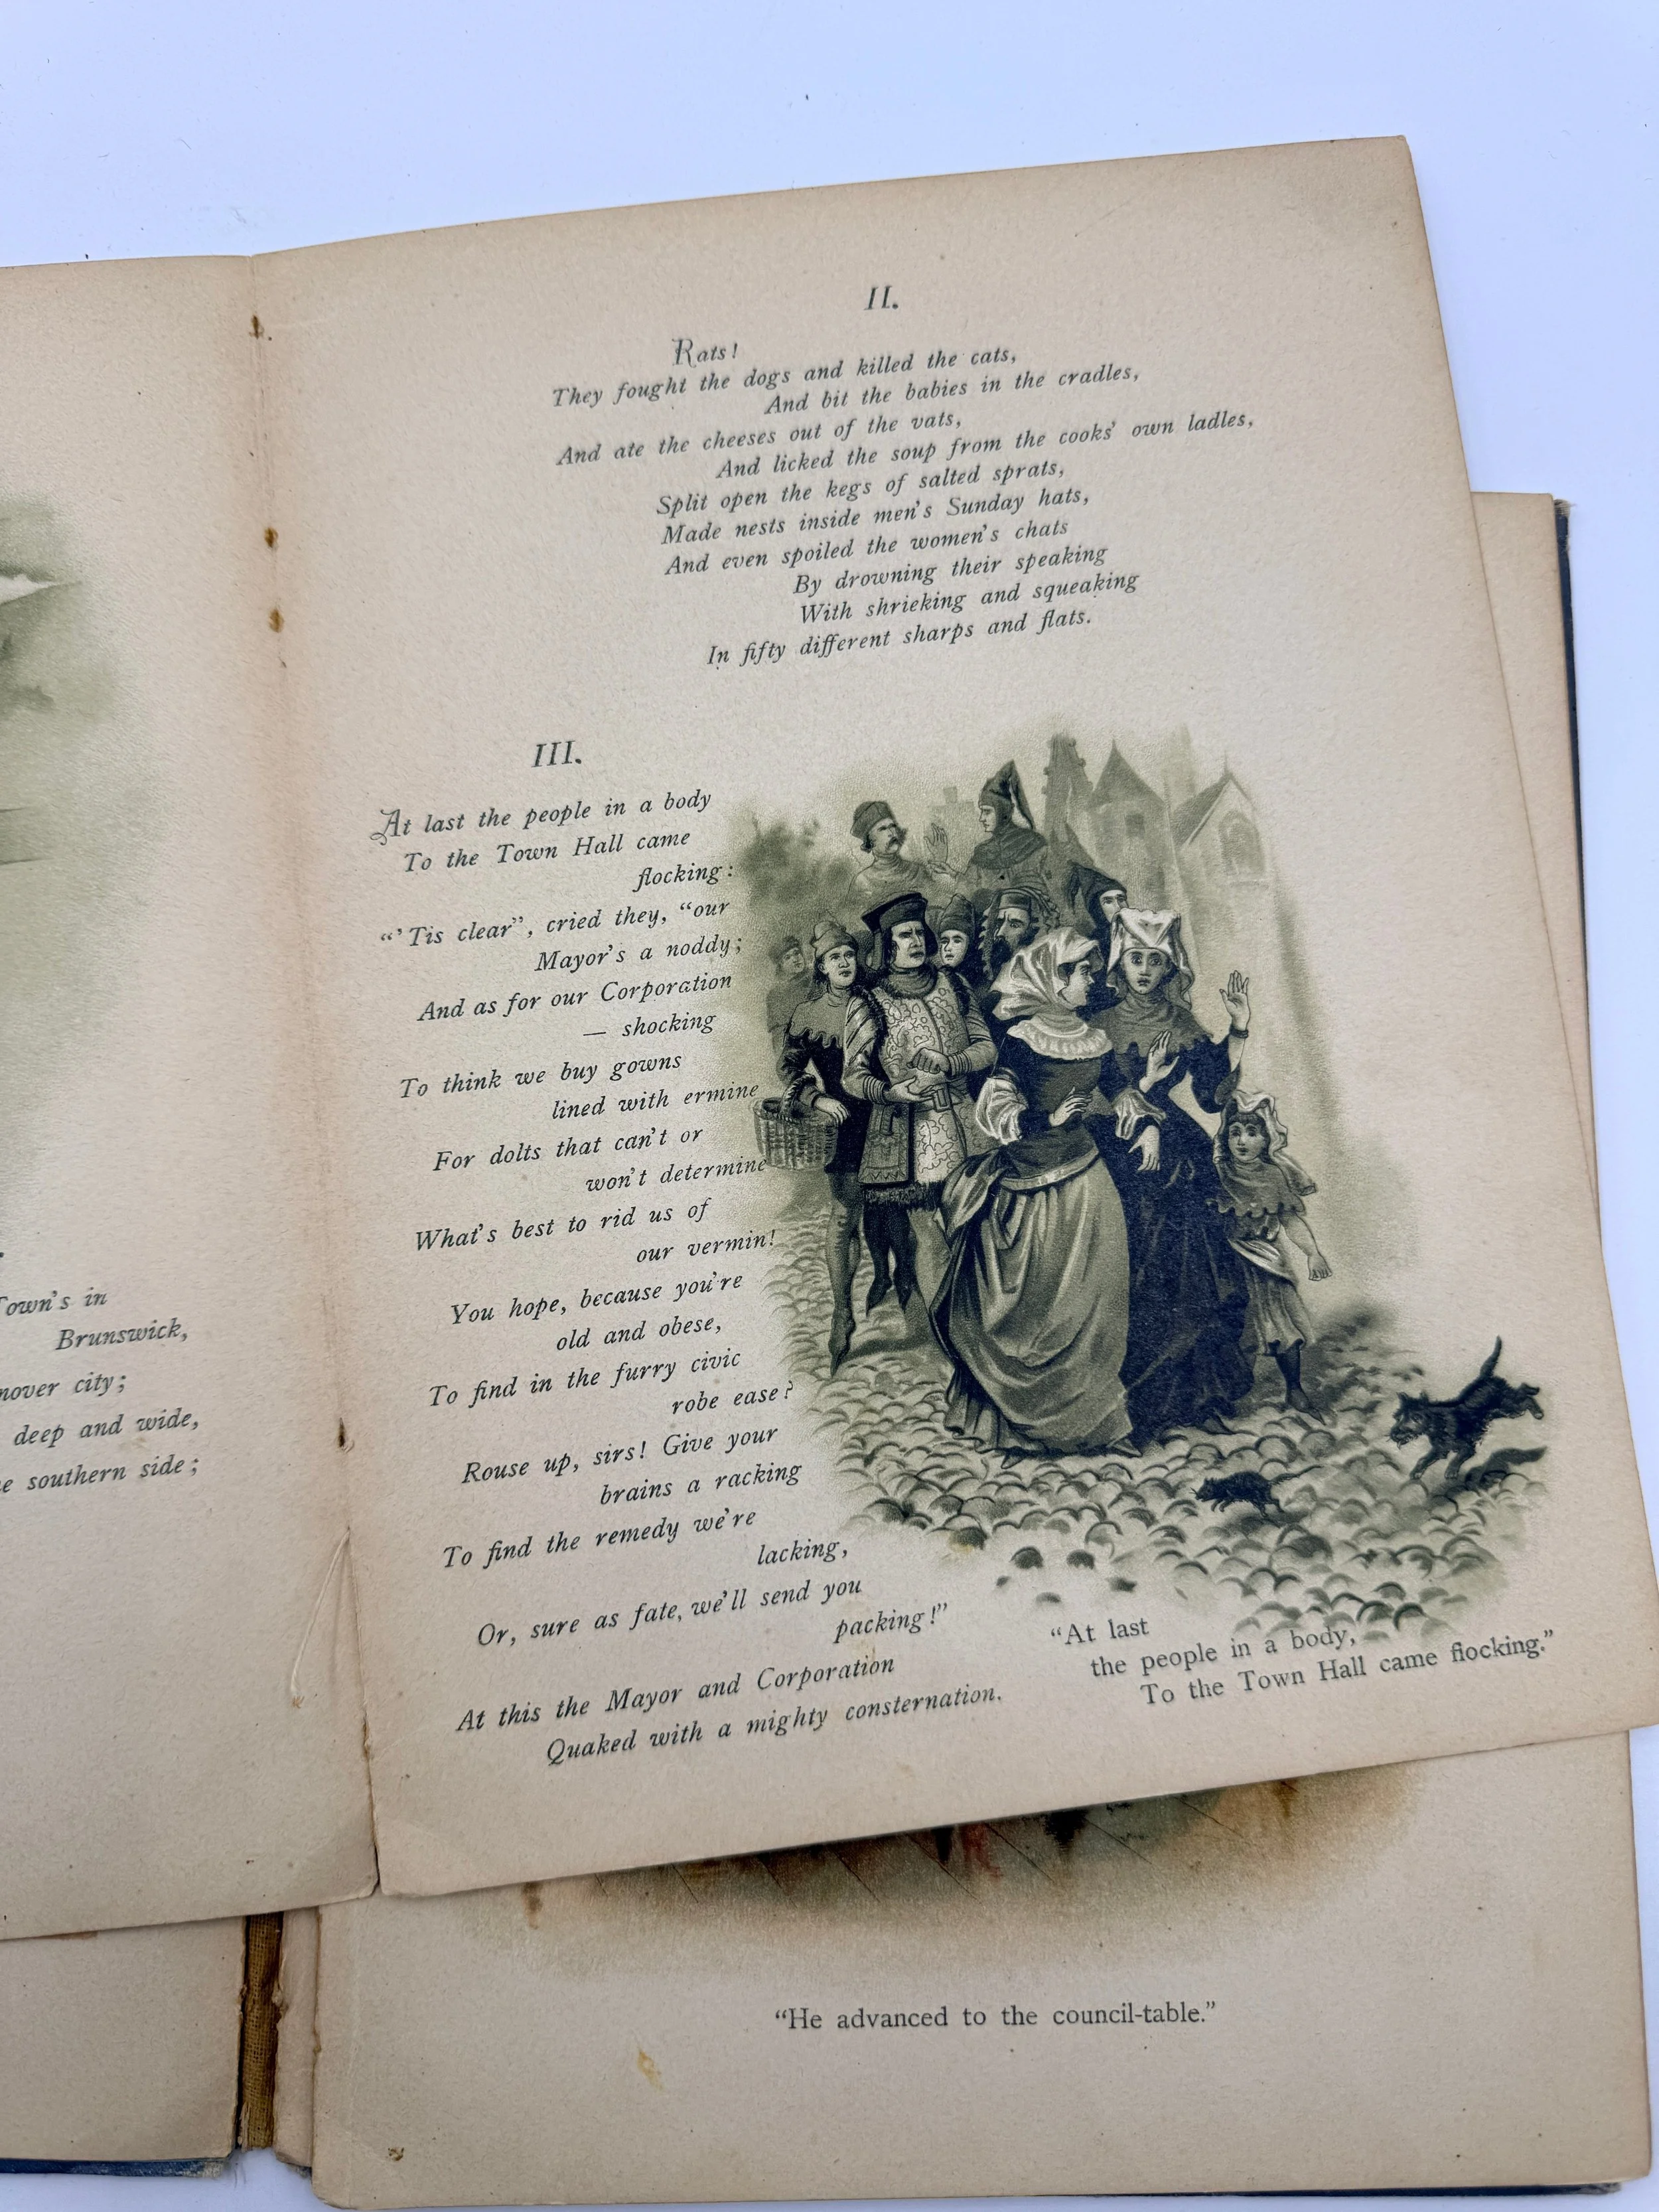 Town's in
Brunswick,
city;
deep and wide,
southern side;
II.
Rats!
They fought the dogs and killed the cats,
And bit the babies in the cradles,
And ate the cheeses out of the vats,
And licked the soup from the cooks' own ladles,
Split open the kegs of salted sprats,
Made nests inside men's Sunday hats,
And even spoiled the women's chats
By drowning their speaking
With shrieking and squeaking
In fifty different sharps and flats.
III.
At last the people in a body
To the Town Hall came
flocking:
"'Tis clear", cried they, "our
Mayor's a noddy;
And as for our Corporation
— shocking
To think we buy gowns
lined with ermine
For dolts that can't or
won't determine
What's best to rid us of
our vermin!
You hope, because you're
old and obese,
To find in the furry civic
robe ease?
Rouse up, sirs! Give your
brains a racking
To find the remedy we're
lacking,
Or, sure as fate, we'll send you
packing!"
At this the Mayor and Corporation
Quaked with a mighty consternation.
"At last
the people in a body,
To the Town Hall came flocking."
"He advanced to the council-table."